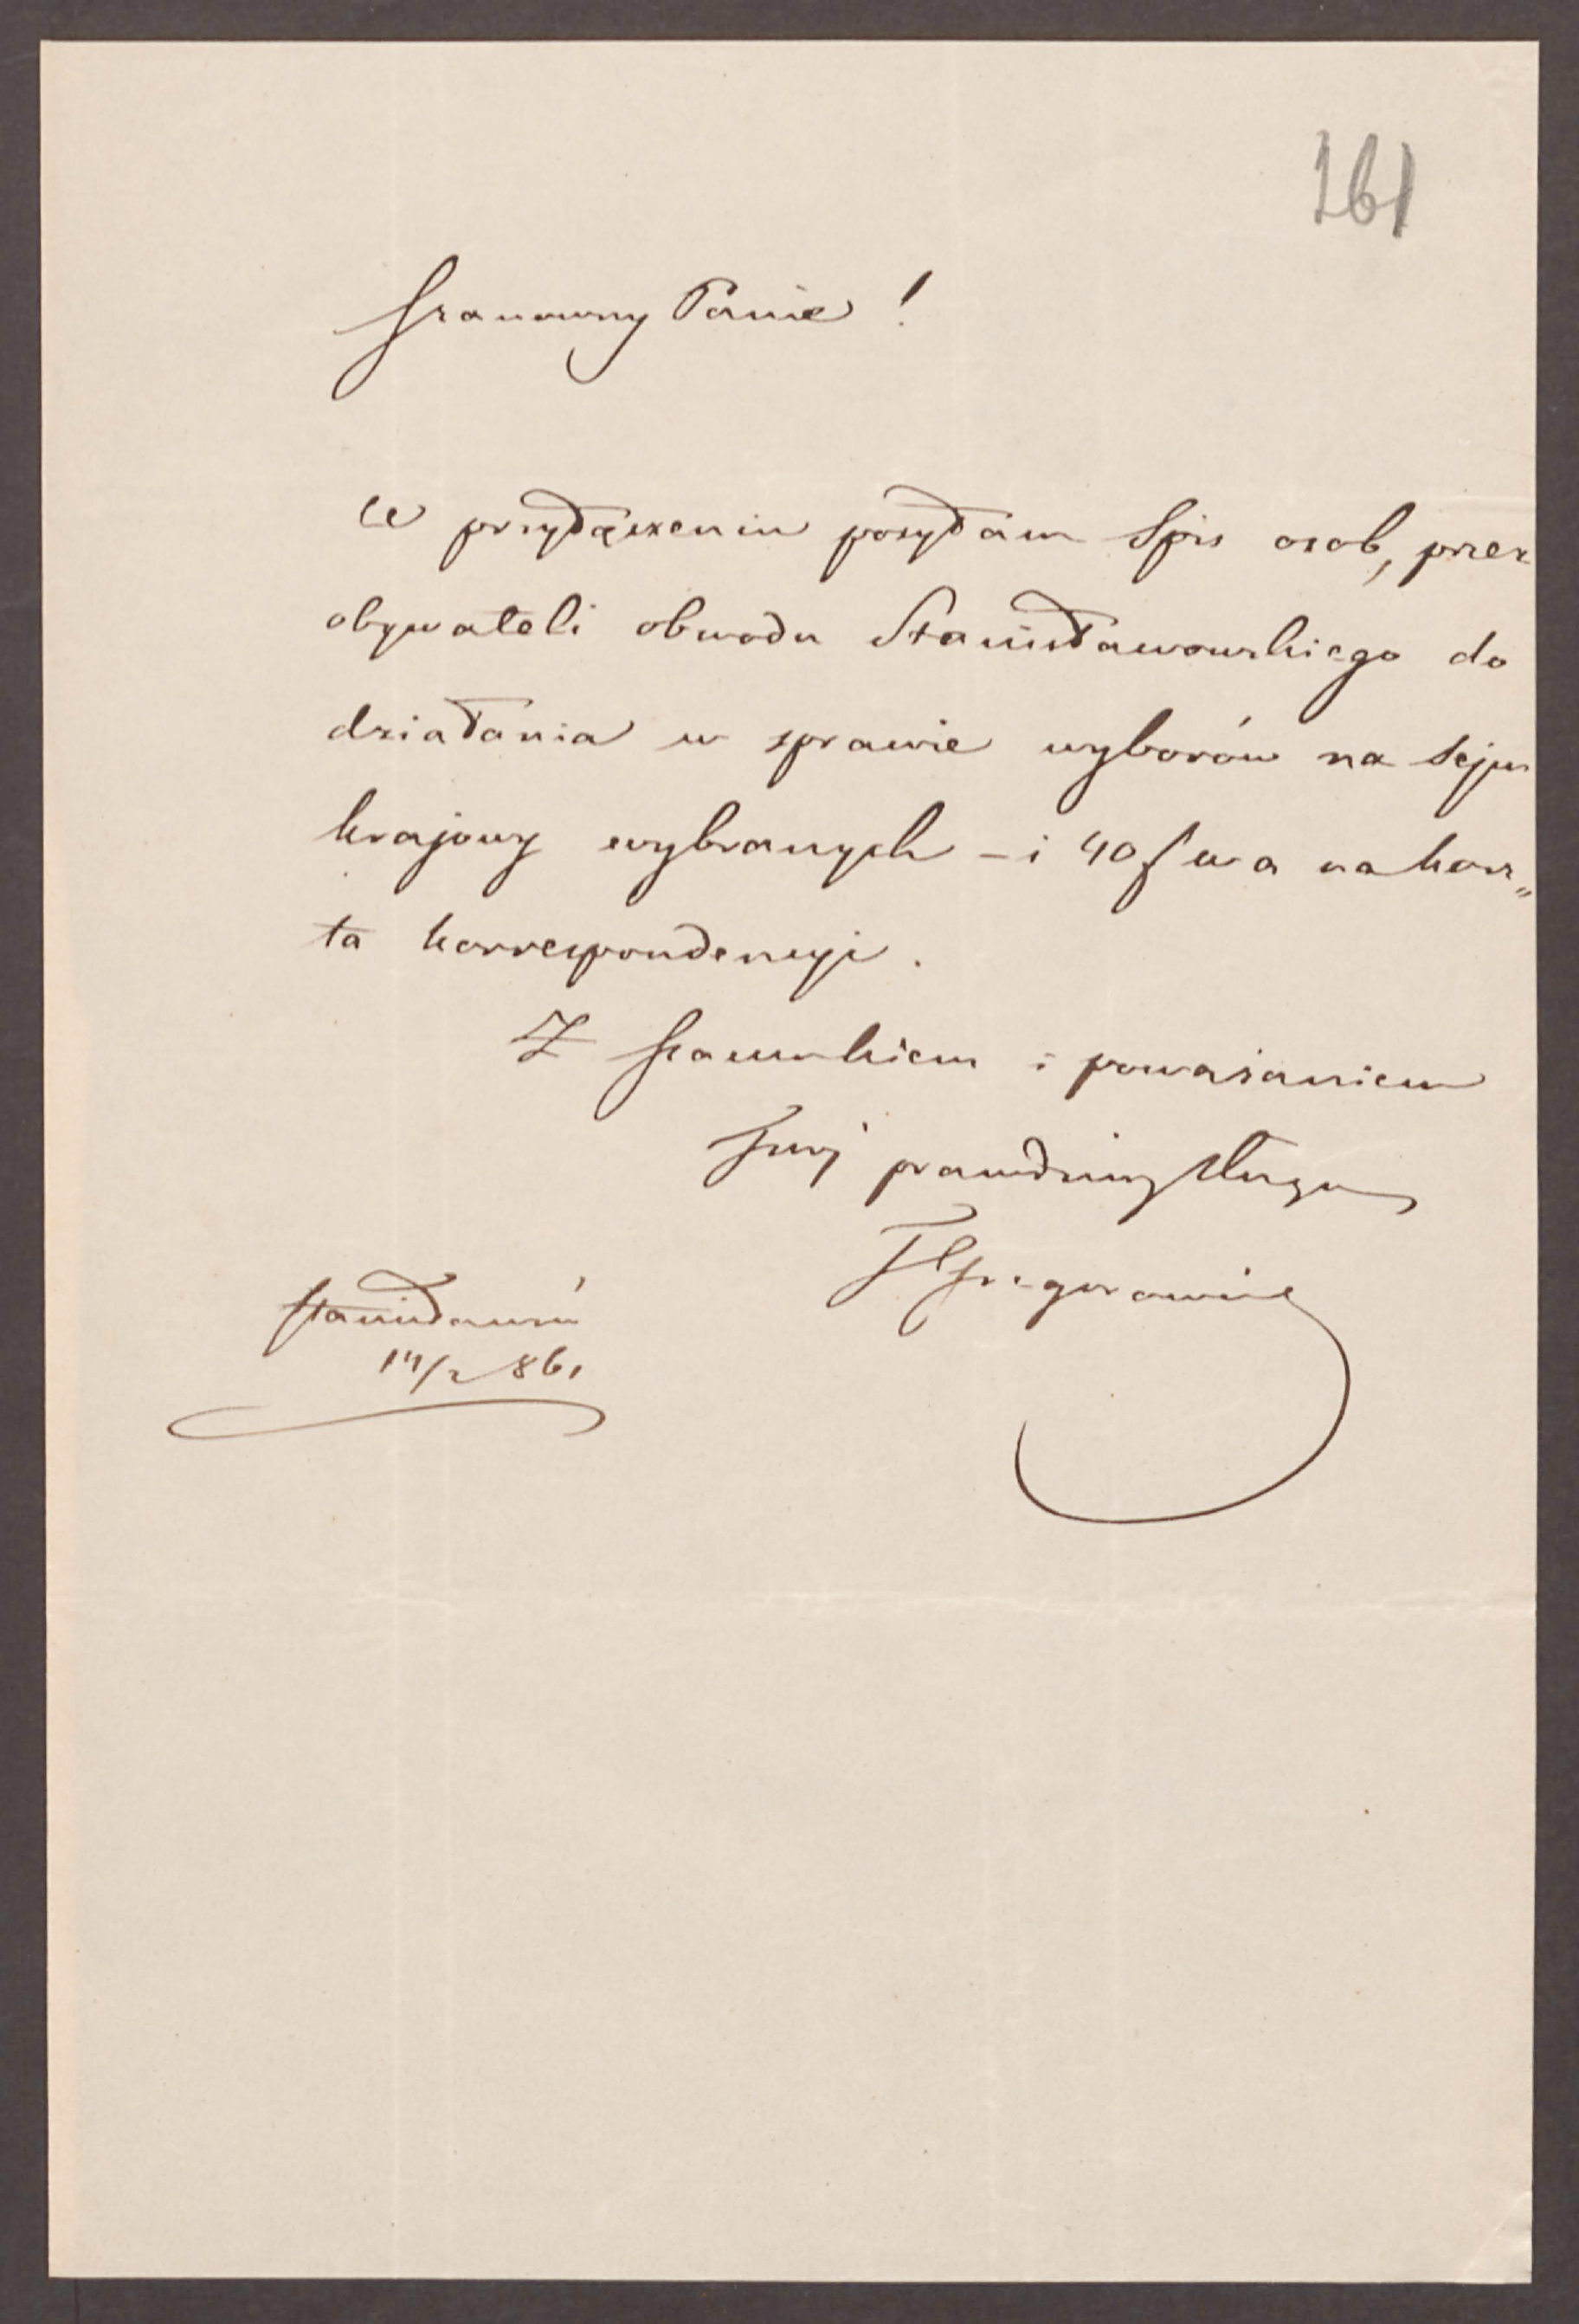 161
Szanowny Panie!
W przyłączeniu posyłam Spis osob, przez
obywateli obwodu Stanisławowskiego do
działania w sprawie wyborów na Sejm
krajowy wybranych – i 40 f w a na kosz„
ta korrespondencyi.
Z szacunkiem i poważaniem
prawdziwy sługa
Stanisławów
14/2 861